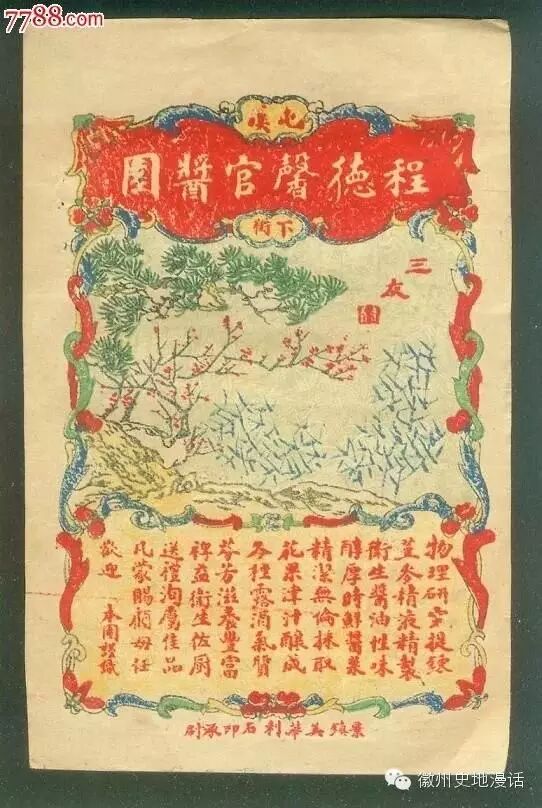 7788.com
屯溪
程德馨官醬園
下街
三友
物理研究提鍊
荳麥精液精製
衛生醬油性味
醇厚時鮮醬菜
精潔無倫採取
花果津汁釀成
各種露酒氣質
芬芳滋養豐富
裨益衛生佐厨
送禮洵屬佳品
凡蒙賜顧毋任
歡迎 本園謹識
景鎮美華利石印承刷
徽州史地漫话